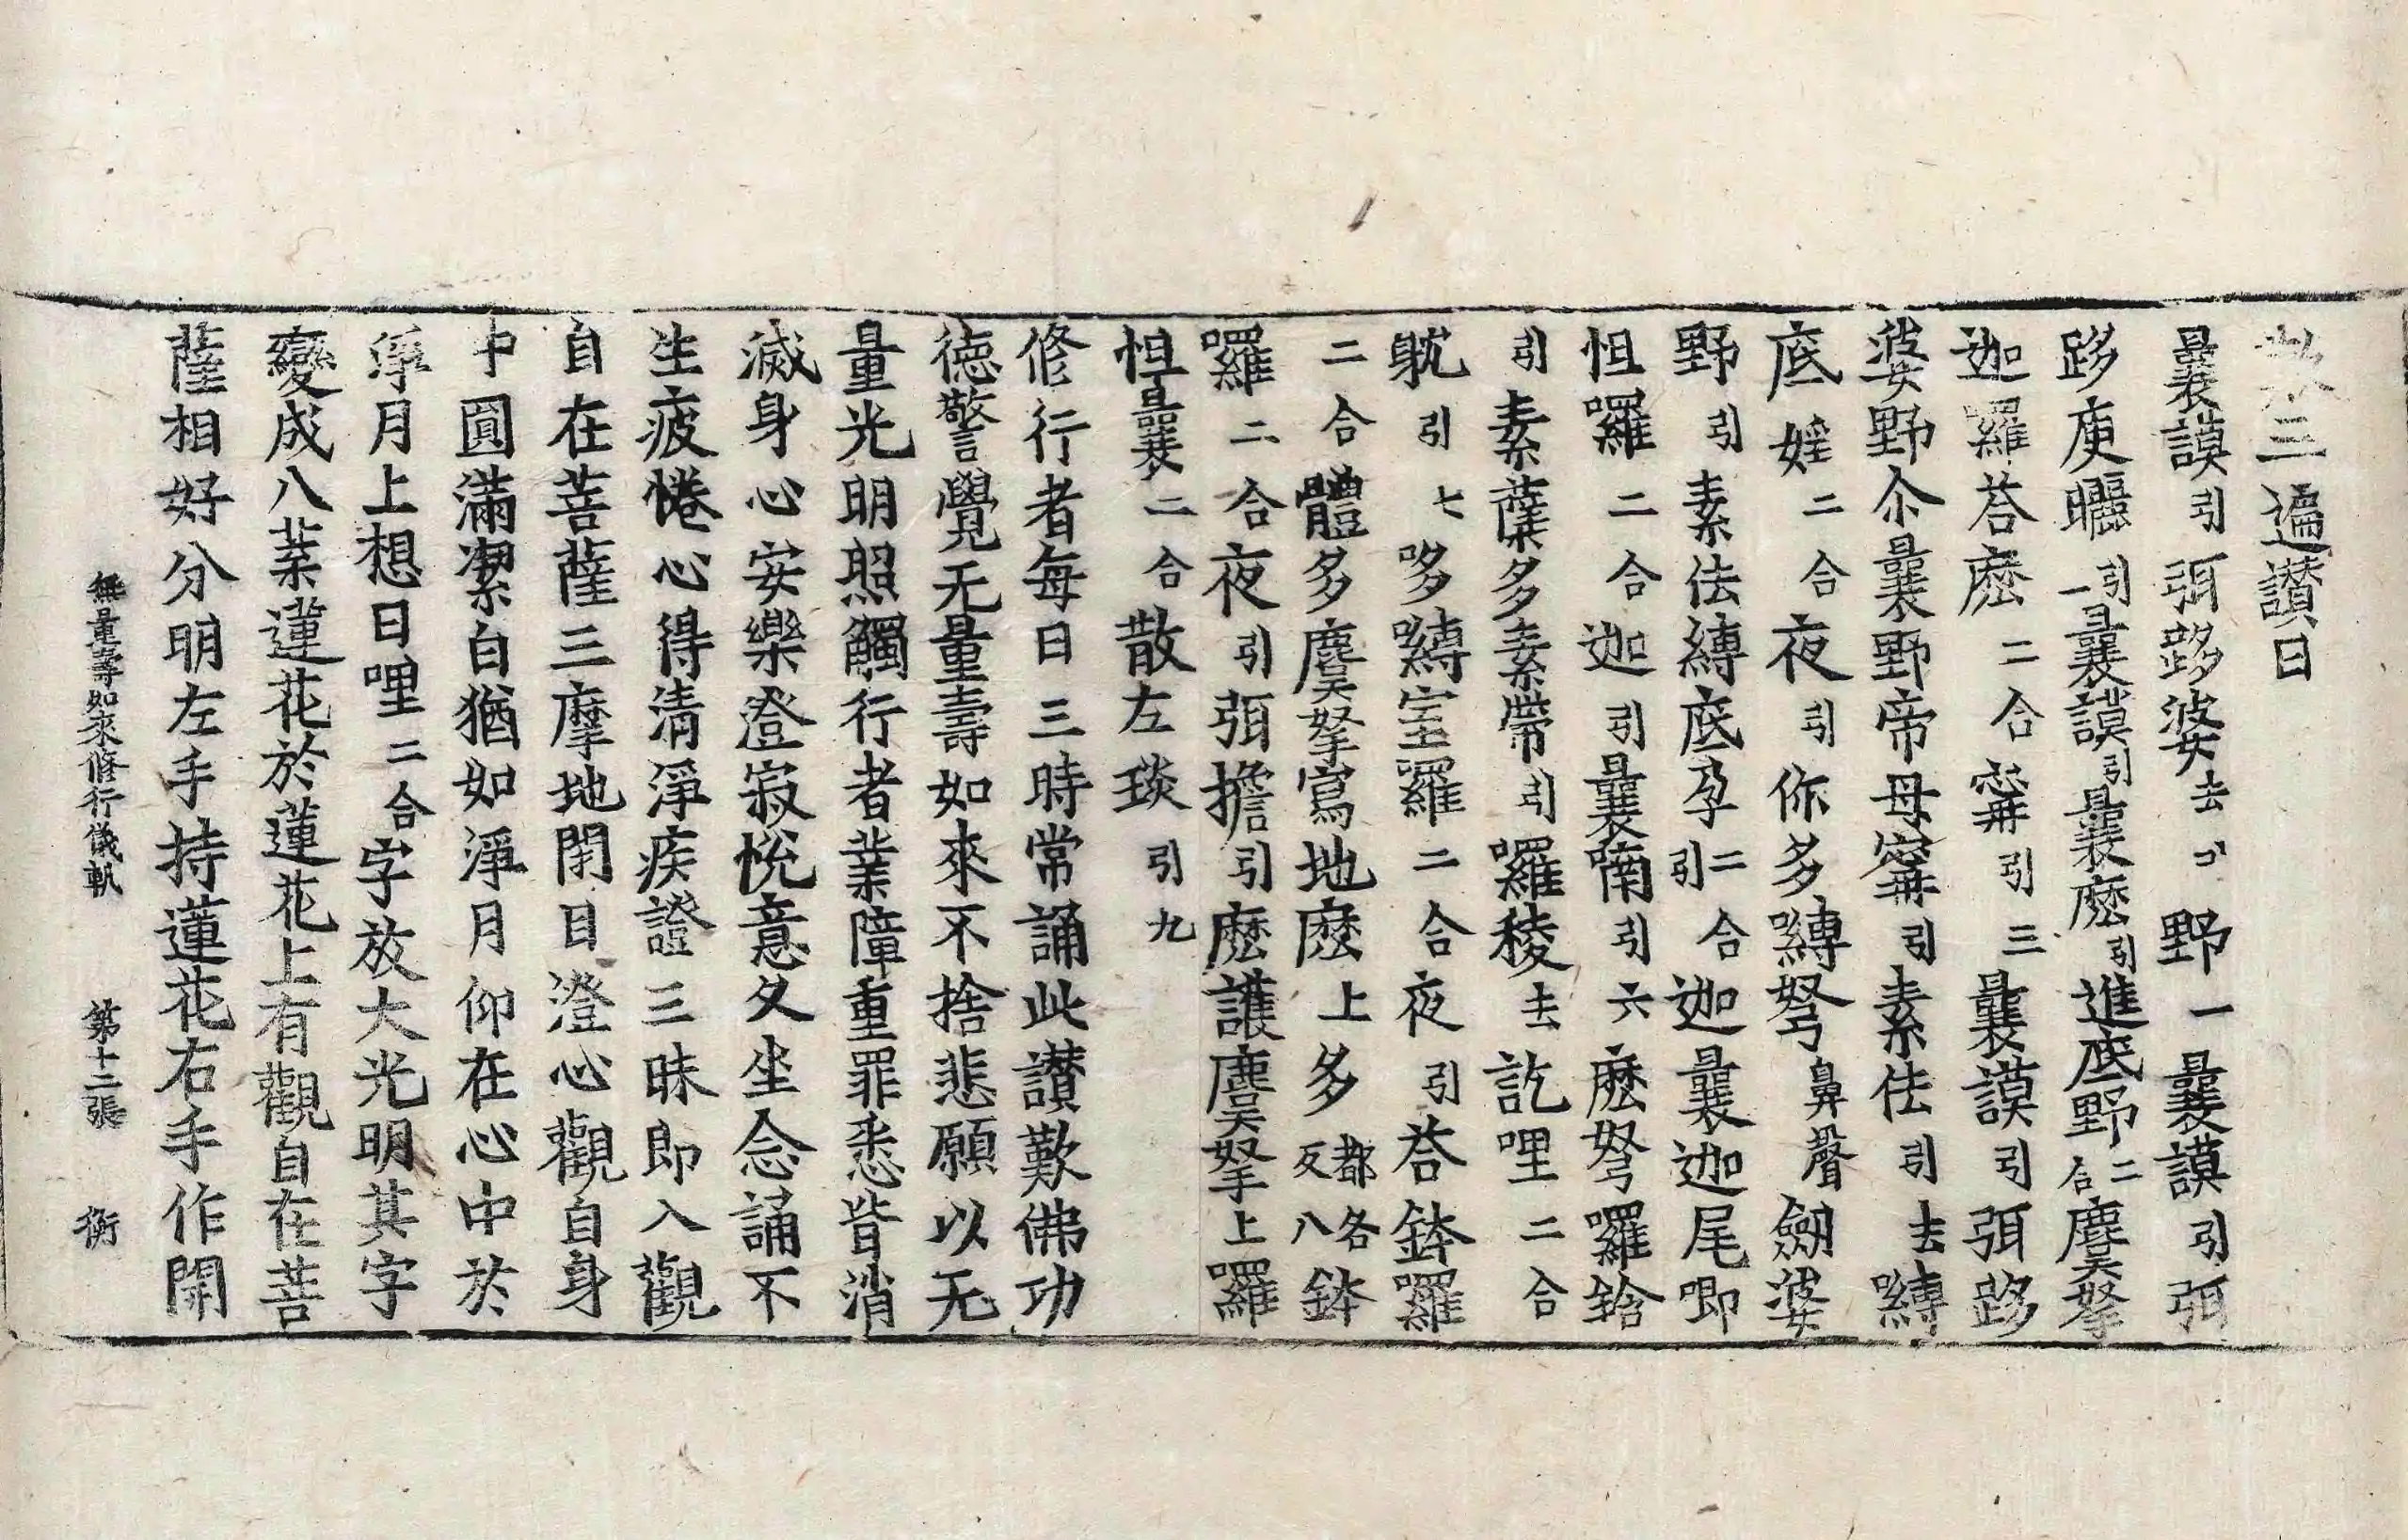 三遍讃曰
曩謨引弭跢婆去引野一曩謨引弭
跢庾曬引一曩謨引曩麽引進底野二合麌拏
迦囉荅麽二合甯引三曩謨引弭跢
婆野尒曩野帝母甯引素佉引去嚩
底婬二合夜引你多嚩弩鼻聲劒婆
野引素佉嚩底孕二合引迦曩迦尾唧
怛囉二合迦引曩喃引六麽弩囉䤴
引素蘖多素帶引囉稜去訖哩二合
躭引七哆嚩室羅二合夜引荅鉢囉
二合體多麌拏寫地麽上多都各反八鉢
囉二合夜引弭擔引麽護麌拏上囉
怛曩二合散左琰引九
修行者每日三時常誦此讃歎佛功
徳警覺无量壽如來不捨悲願以无
量光明照觸行者業障重罪悉皆消
滅身心安樂澄寂悅意久坐念誦不
生疲惓心得清淨疾證三昧即入觀
自在菩薩三摩地閇目澄心觀自身
中圓滿潔白猶如淨月仰在心中於
淨月上想曰哩二合字放大光明其字
變成八葉蓮花於蓮花上有觀自在菩
薩相好分明左手持蓮花右手作開
無量壽如來修行儀軌　第十二張　衡